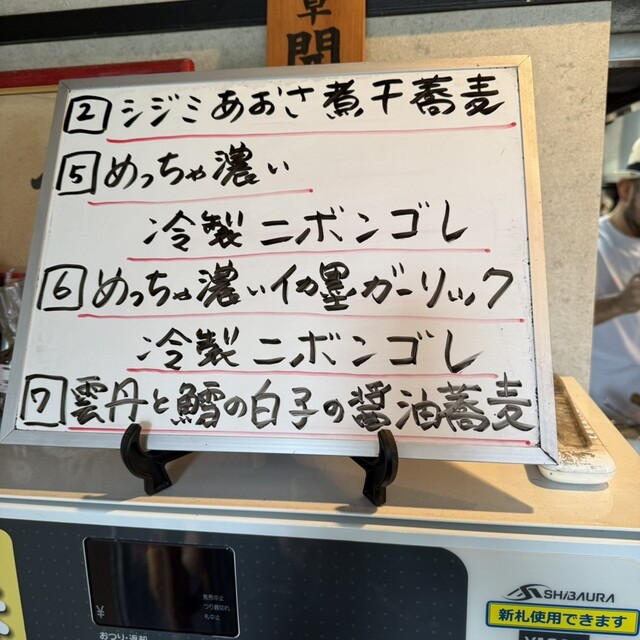 開
2 シジミあおさ煮干蕎麦
5 めっちゃ濃い
冷製ニボンゴレ
6 めっちゃ濃いイカ墨ガーリック
冷製ニボンゴレ
7 雲丹と鱈の白子の醤油蕎麦
SHIBAURA
新札使用できます
¥
おつり・返却